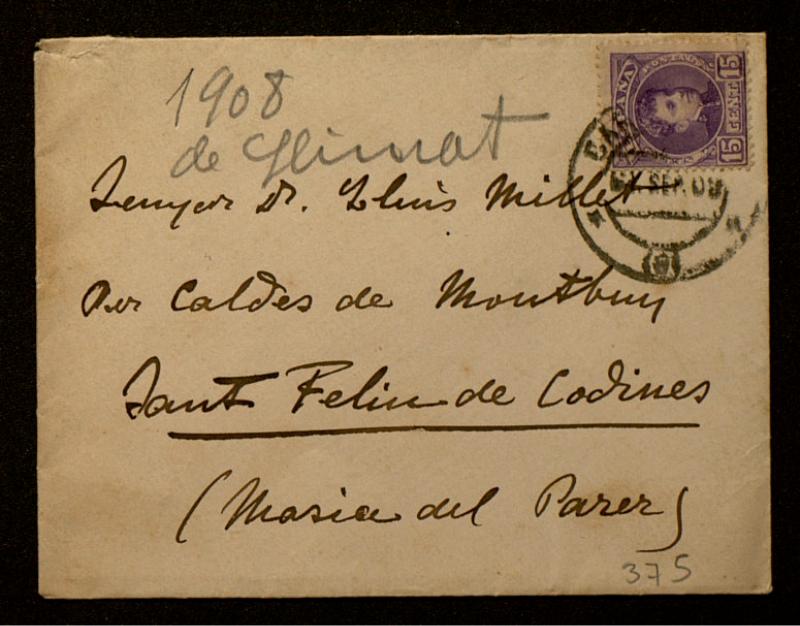 1908
de Glimat
Senyor Dr. Lluis Millet
Per Caldes de Montbuy
Sant Feliu de Codines
(Masia del Parer)
375
ESPAÑA
15 CENT 15
SEP. 08